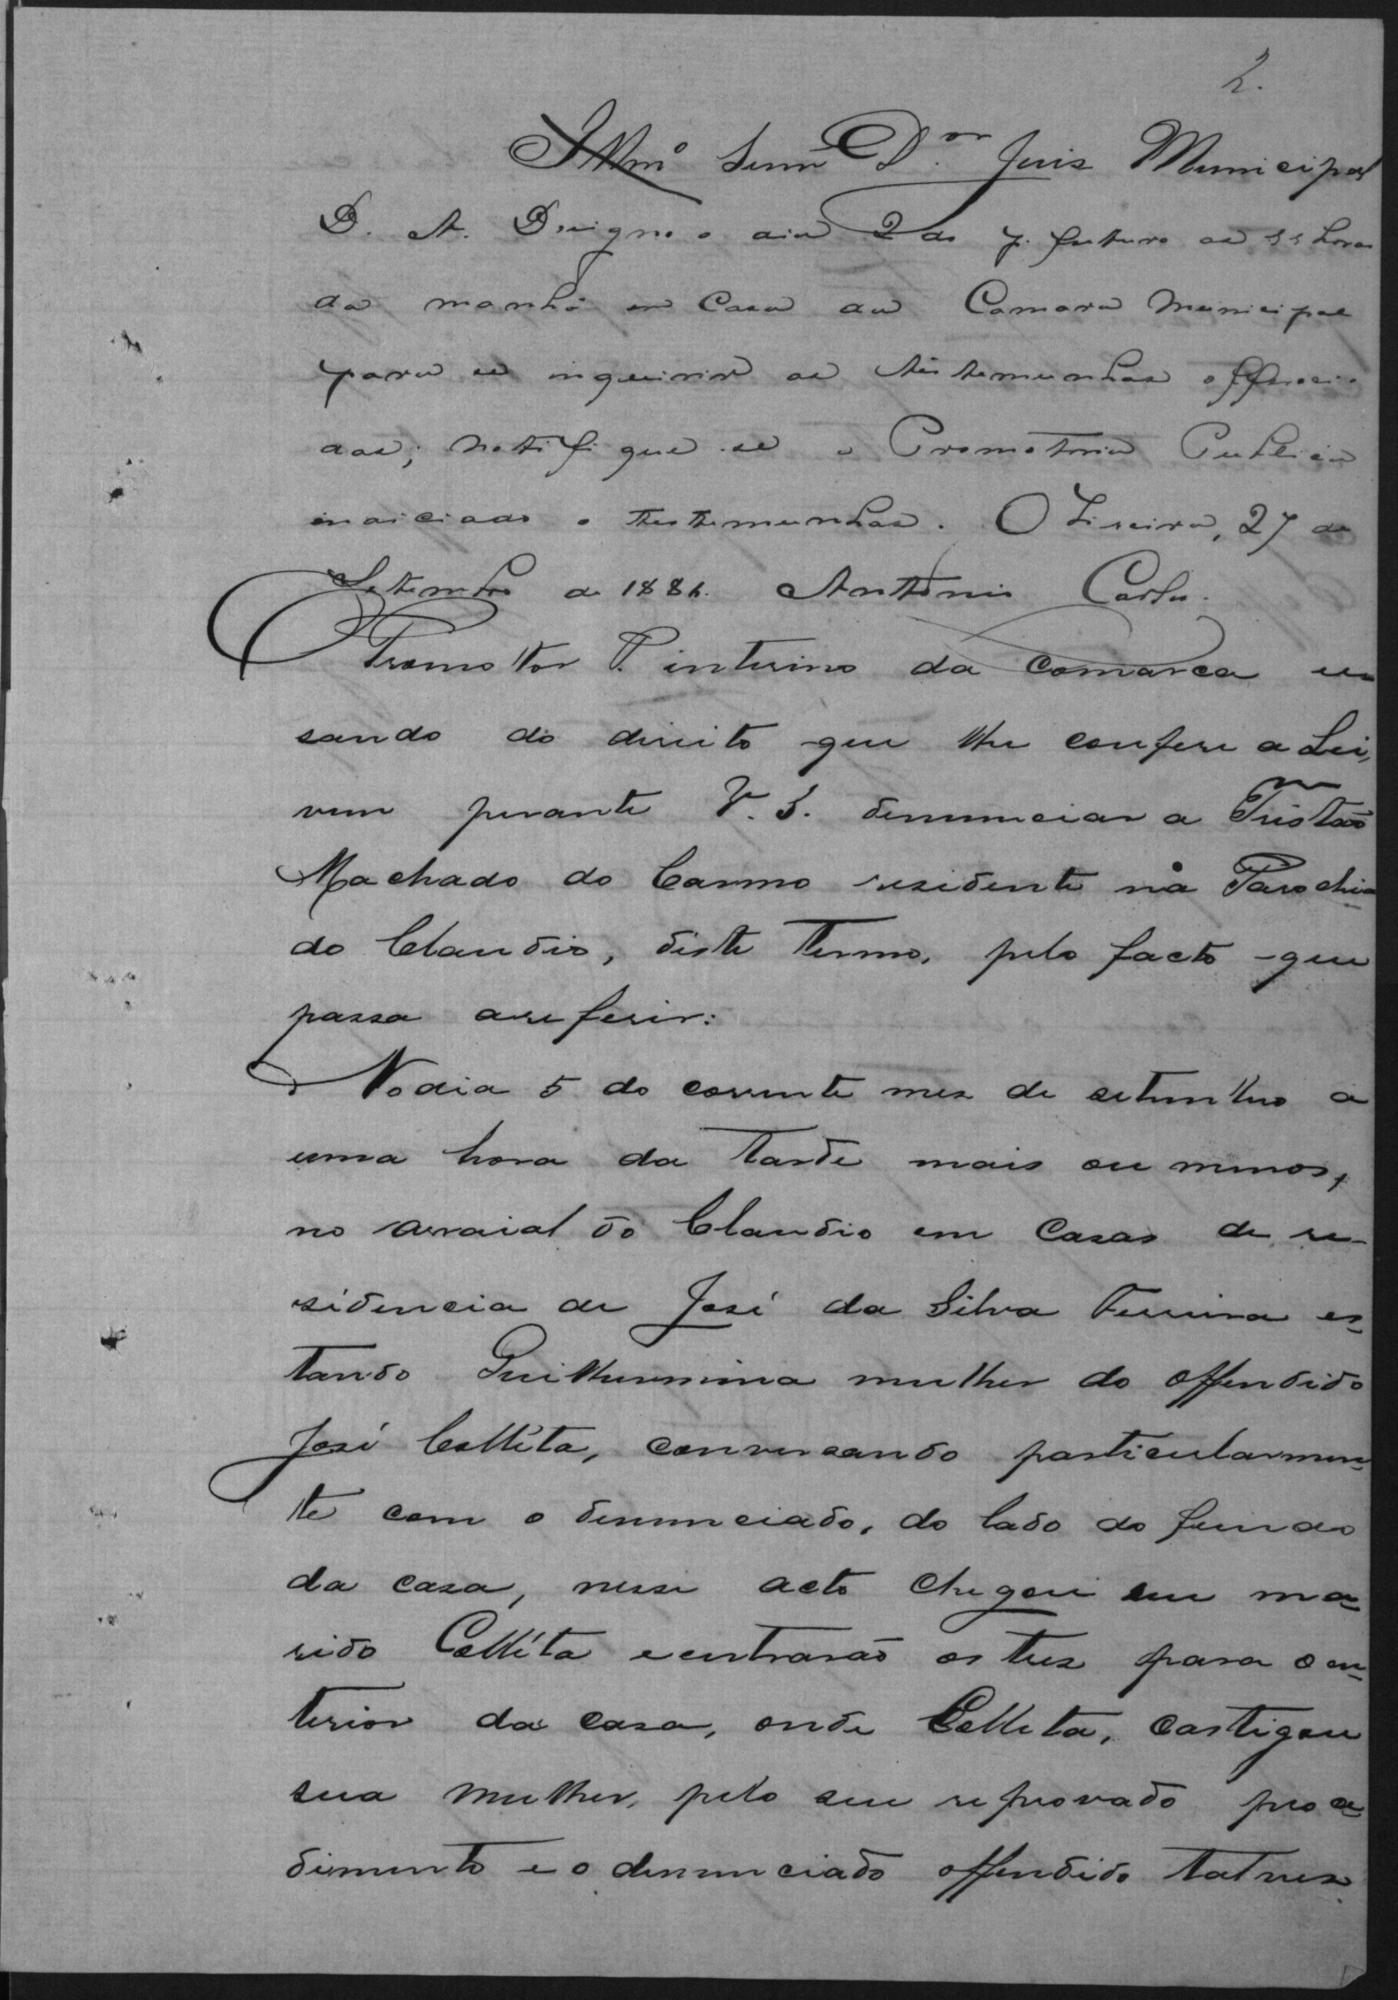 2.
Illmº Senr Dr. Juis Municipal
D. A. Designo o dia 2 do p. futuro as 11 horas
da manhã em Casa da Camara Municipal
para se inquirir as testemunhas offereci-
das; notifique-se a Promotoria Publica
indiciado e testemunhas. Oliveira, 27 de
Setembro de 1886. Antonio Carlos.
O Promottor P. interino da comarca u-
sando do direito que lhe confere a Lei,
vem perante V. S. denunciar a Tristão
Machado do Carmo residente na Parochia
do Claudio, deste Termo, pelo facto que
passa a referir:
No dia 5 do corrente mes de setembro a
uma hora da tarde mais ou menos,
no arraial do Claudio em casas de re-
sidencia de José da Silva Ferreira es-
tando Guilhermina mulher do offendido
José Colléta, conversando particularmen-
te com o denunciado, do lado do fundo
da casa, nesse acto chegou seu ma-
rido Colléta e entrarão os tres para o in-
terior da casa, onde Colleta, castigou
sua mulher, pelo seu reprovado proce-
dimento e o denunciado offendido talves